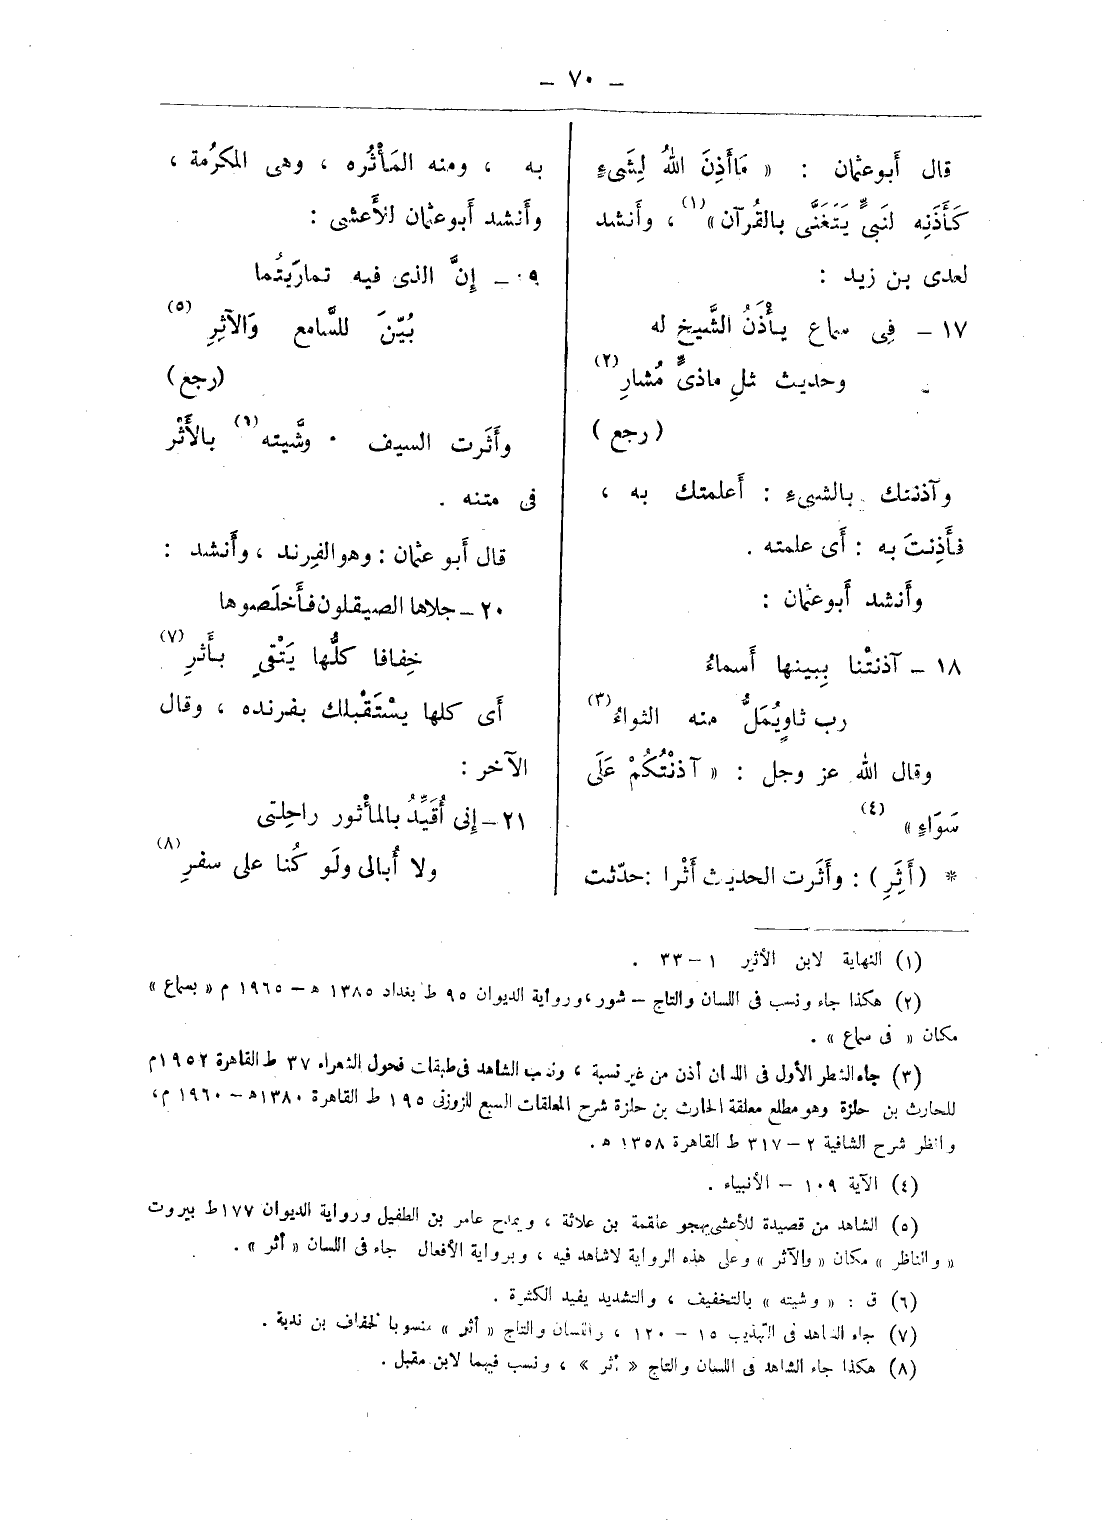 – ٧٠ –
قال أَبوعثمان : « مَاأَذِنَ اللهُ لِشَىءٍ
كَأَذَنِه لنَبىٍّ يَتَغَنَّى بالقُرآن»(١)، وأَنشد
لعدى بن زيد :
١٧ – فِى سماع يأْذَنُ الشَّيخ له
وحديث ثلِ ماذىٍّ مُشارِ(٢)
( رجع )
وآذنتك بالشىءِ : أَعلمتك به ،
فأَذِنتَ به : أَى علمته .
وأَنشد أَبوعثمان :
١٨ – آذنتْنا بِبينها أَسماءُ
رب ثاوٍيُمَلُّ منه الثواءُ(٣)
وقال الله عز وجل : « آذنْتُكُمْ عَلَى
سَوَاءٍ » (٤)
* ( أَثِرِ ) : وأَثَرت الحديث أَثْرا : حدّثت
به ، ومنه المَأْثُره ، وهى المكرُمة ،
وأَنشد أَبوعثمان للأَعشى :
٠٩ – إِنَّ الذى فيه تماريتُما
بُيّنَ للسَّامع وَالآثِرِ (٥)
(رجع)
وأَثَرت السيف ٠ وشَّيته(٦) بالأَثْر
فى متنه .
قال أَبو عثمان : وهو الفِرند ، وأَنشد :
٢٠ – جلاها الصيقلون فأَخلَصوها
خِفافا كلُّها يَتْقىِ بأَثرِ(٧)
أَى كلها يسْتَقْبلك بفرنده ، وقال
الآخر :
٢١ – إِنى أُقَيِّدُ بالمأْثور راحِلتى
ولا أُبالى ولَو كُنا على سفرِ(٨)
(١) النهاية لابن الأثير ١ – ٣٣ .
(٢) هكذا جاء ونسب فى اللسان والتاج – شور ، ورواية الديوان ٩٥ ط بغداد ١٣٨٥ ه – ١٩٦٥ م « بسماع »
مكان « فى سماع » .
(٣) جاء الشطر الأول فى اللسان أذن من غير نسبة ، ونسب الشاهد فى طبقات فحول الشعراء ٣٧ ط القاهرة ١٩٥٢م
للحارث بن حلزة وهو مطلع معلقة الحارث بن حلزة شرح المعلقات السبع للزوزنى ١٩٥ ط القاهرة ١٣٨٠ه – ١٩٦٠ م ،
وانظر شرح الشافية ٢ – ٣١٧ ط القاهرة ١٣٥٨ ه .
(٤) الآية ١٠٩ – الأنبياء .
(٥) الشاهد من قصيدة للأعشى يهجو علقمة بن علاثة ، ويمدح عامر بن الطفيل ورواية الديوان ١٧٧ ط بيروت
« والناظر » مكان « والآثر » وعلى هذه الرواية لاشاهد فيه ، وبرواية الأفعال جاء فى اللسان « أثر » .
(٦) ق : « وشيته » بالتخفيف ، والتشديد يفيد الكثرة .
(٧) جاء الشاهد فى التهذيب ١٥ – ١٢٠ ، واللسان والتاج « أثر » منسوبا لخفاف بن ندبة .
(٨) هكذا جاء الشاهد فى اللسان والتاج « أثر » ، ونسب فيهما لابن مقبل .